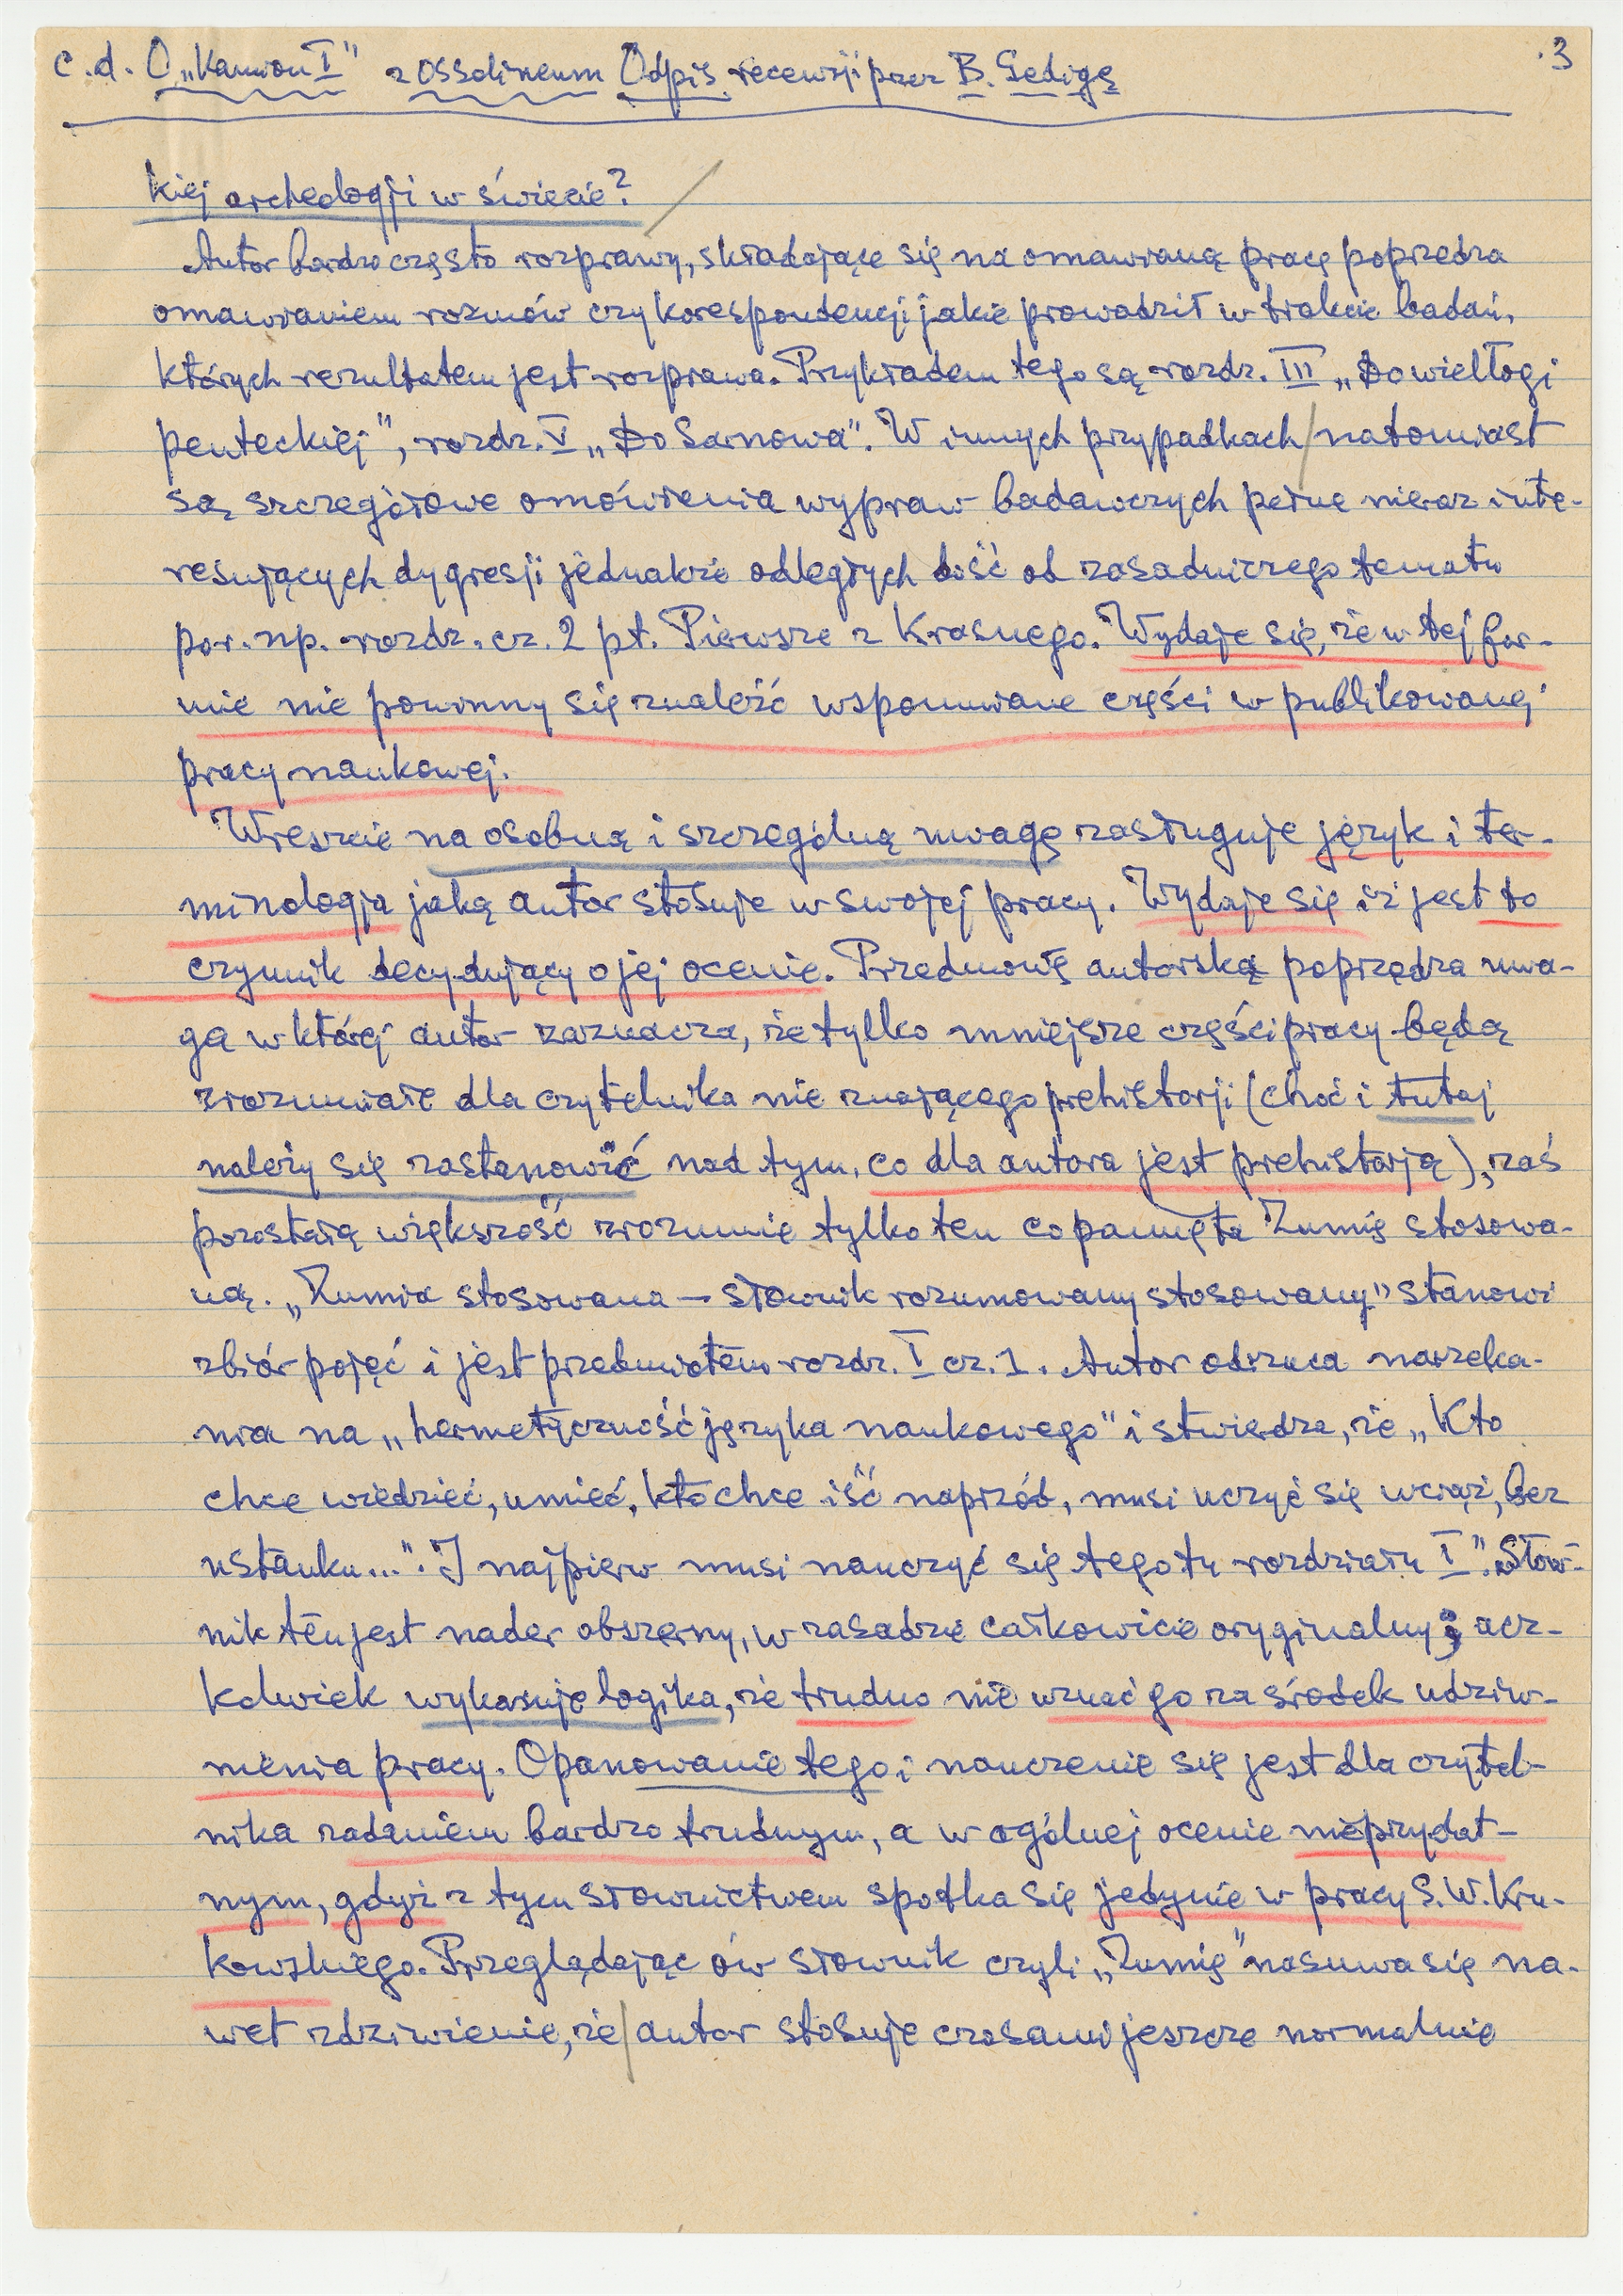 c.d. O „Kamion I" z Ossolineum Odpis recenzji przez B. Gedigę
3
kiej archeologji w świecie?
Autor bardzo często rozprawy, składające się na omawianą pracę poprzedza
omawianiem rozmów czy korespondencji jakie prowadził w trakcie badań,
których rezultatem jest rozprawa. Przykładem tego są rozdz. III „Do wielłogi
penteckiej", rozdz. V „Do Sarnowa". W innych przypadkach/natomiast
są szczegółowe omówienia wypraw badawczych pełne nieraz inte-
resujących dygresji jednakże odległych dość od zasadniczego tematu
por. np. rozdz. cz. 2 pt. Pierwsze z Krasnego. Wydaje się, że w tej for-
mie nie powinny się znaleźć wspomniane części w publikowanej
pracy naukowej.
Wreszcie na osobną i szczególną uwagę zasługuje język i ter-
minologja jaką autor stosuje w swojej pracy. Wydaje się iż jest to
czynnik decydujący o jej ocenie. Przedmowę autorską poprzedza uwa-
ga w której autor zaznacza, że tylko mniejsze części pracy będą
zrozumiałe dla czytelnika nie znającego prehistorji (choć i tutaj
należy się zastanowić nad tym, co dla autora jest prehistorją), zaś
pozostałą większość zrozumie tylko ten co pamięta Zumię stosowa-
ną. „Zumia stosowana – słownik rozumowany stosowany" stanowi
zbiór pojęć i jest przedmiotem rozdz. I cz. 1. Autor odrzuca narzeka-
nia na „hermetyczność języka naukowego" i stwierdza, że „Kto
chce wiedzieć, umieć, kto chce iść naprzód, musi uczyć się wciąż, bez
ustanku...". I najpierw musi nauczyć się tego tu rozdziału I". Słow-
nik ten jest nader obszerny, w zasadzie całkowicie oryginalny; acz-
kolwiek wykazuje logika, że trudno nie uznać go za środek udziw-
nienia pracy. Opanowanie tego i nauczenie się jest dla czytel-
nika zadaniem bardzo trudnym, a w ogólnej ocenie nieprzydat-
nym, gdyż z tym słownictwem spotka się jedynie w pracy S. W. Kru-
kowskiego. Przeglądając ów słownik czyli „Zumię" nasuwa się na-
wet zdziwienie, że/autor stosuje czasami jeszcze normalnie